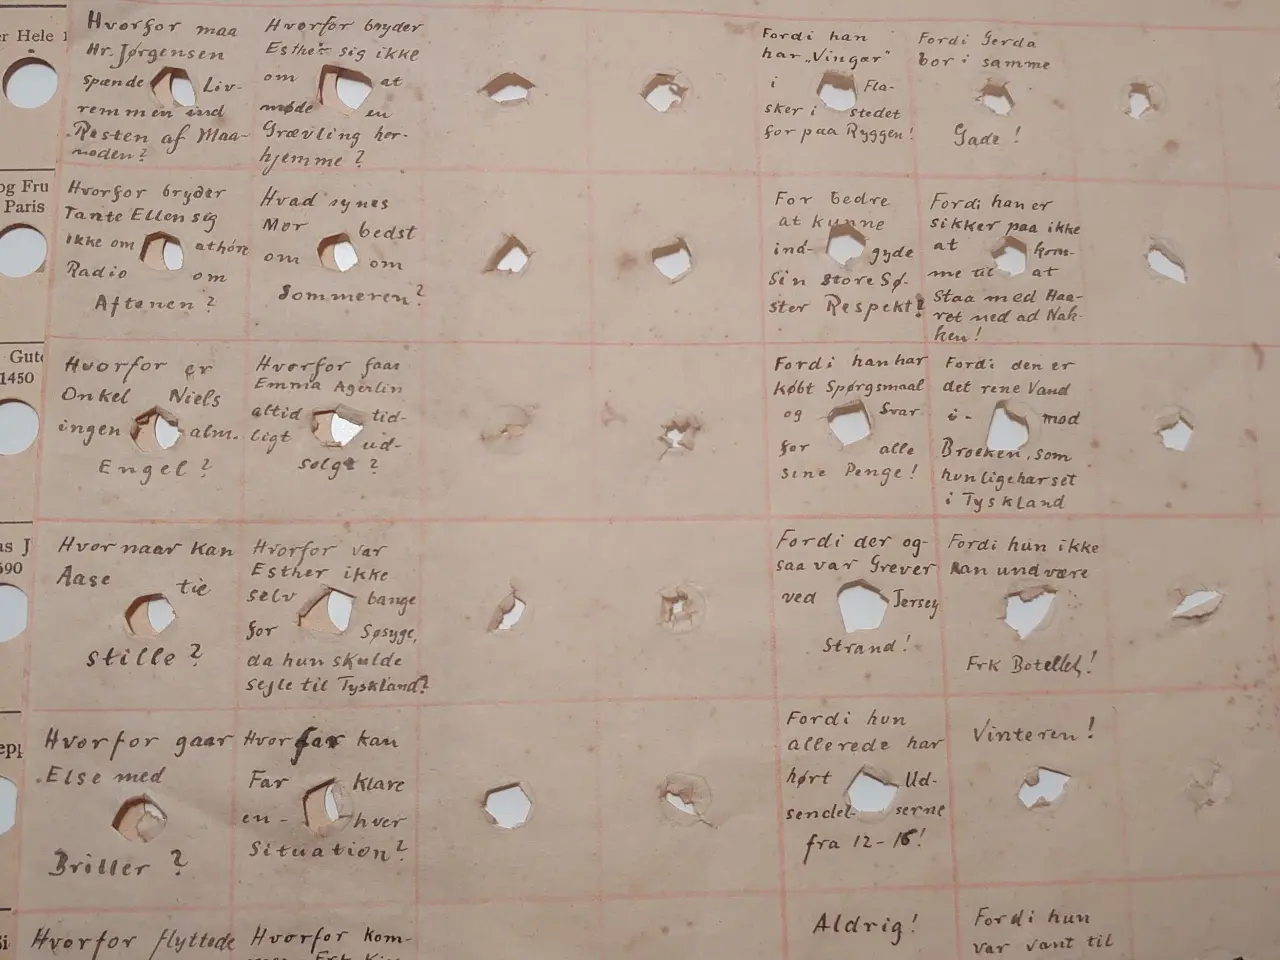 er Hele
og Fru
Paris
Gute
1450
as J
590
epp
Hvorfor maa
Hr. Jørgensen
spænde Liv-
remmen ind
Resten af Maa-
neden?
Hvorfor bryder
Esther sig ikke
om at
møde en
Grævling her-
hjemme?
Fordi han
har "Vinger"
i Fla-
sker i stedet
for paa Ryggen!
Fordi Gerda
bor i samme
Gade!
Hvorfor bryder
Tante Ellen sig
ikke om at høre
Radio om
Aftenen?
Hvad synes
Mor bedst
om om
Sommeren?
For bedre
at kunne
ind- gyde
sin store Sø-
ster Respekt!
Fordi han er
sikker paa ikke
at kom-
me til at
staa med Haa-
ret ned ad Nak-
ken!
Hvorfor er
Onkel Niels
ingen alm.
Engel?
Hvorfor faar
Emma Agerlin
altid tid-
ligt ud-
solgt?
Fordi han har
købt Spørgsmaal
og Svar
for alle
sine Penge!
Fordi den er
det rene Vand
i- mod
Broeken, som
hun lige har set
i Tyskland
Hvornaar kan
Aase tie
stille?
Hvorfor var
Esther ikke
selv bange
for Søsyge,
da hun skulde
sejle til Tyskland?
Fordi der og-
saa var Grever
ved Jersey
Strand!
Fordi hun ikke
kan undvære
Frk Botellel!
Hvorfor gaar
Else med
Briller?
Hvorfor kan
Far klare
en- hver
Situation?
Fordi hun
allerede har
hørt Ud-
sendelserne
fra 12-16!
Vinteren!
Hvorfor flyttede
Hvorfor kom-
Aldrig!
Fordi hun
var vant til